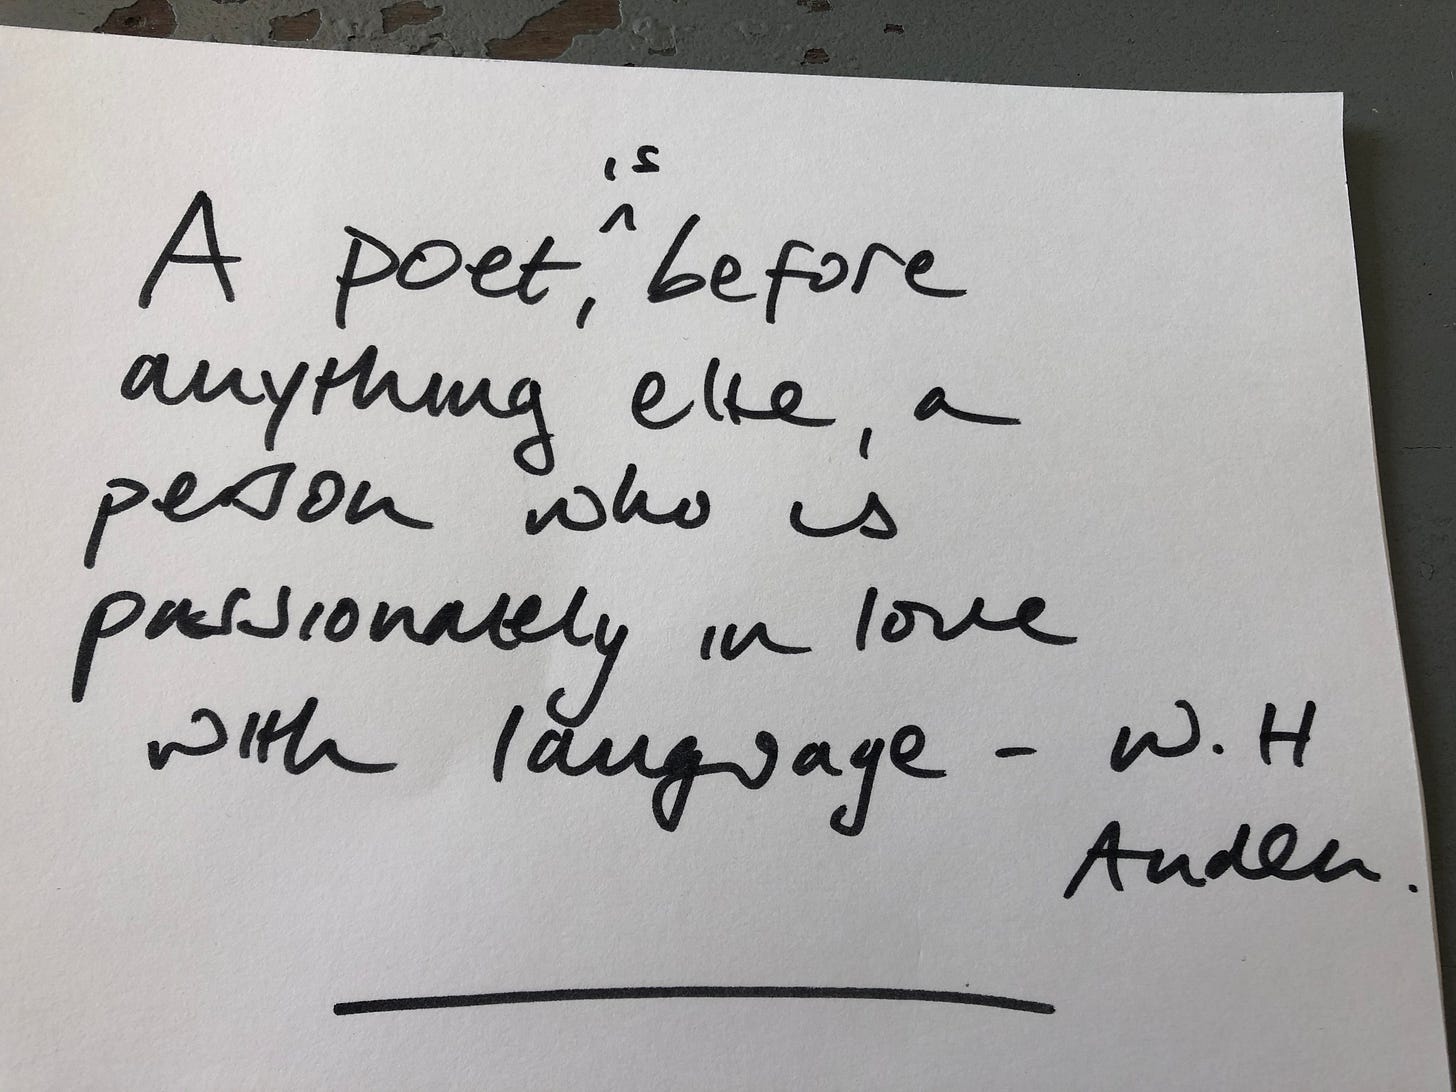 is
A poet, ^ before
anything else, a
person who is
passionately in love
with language - W. H
Auden.